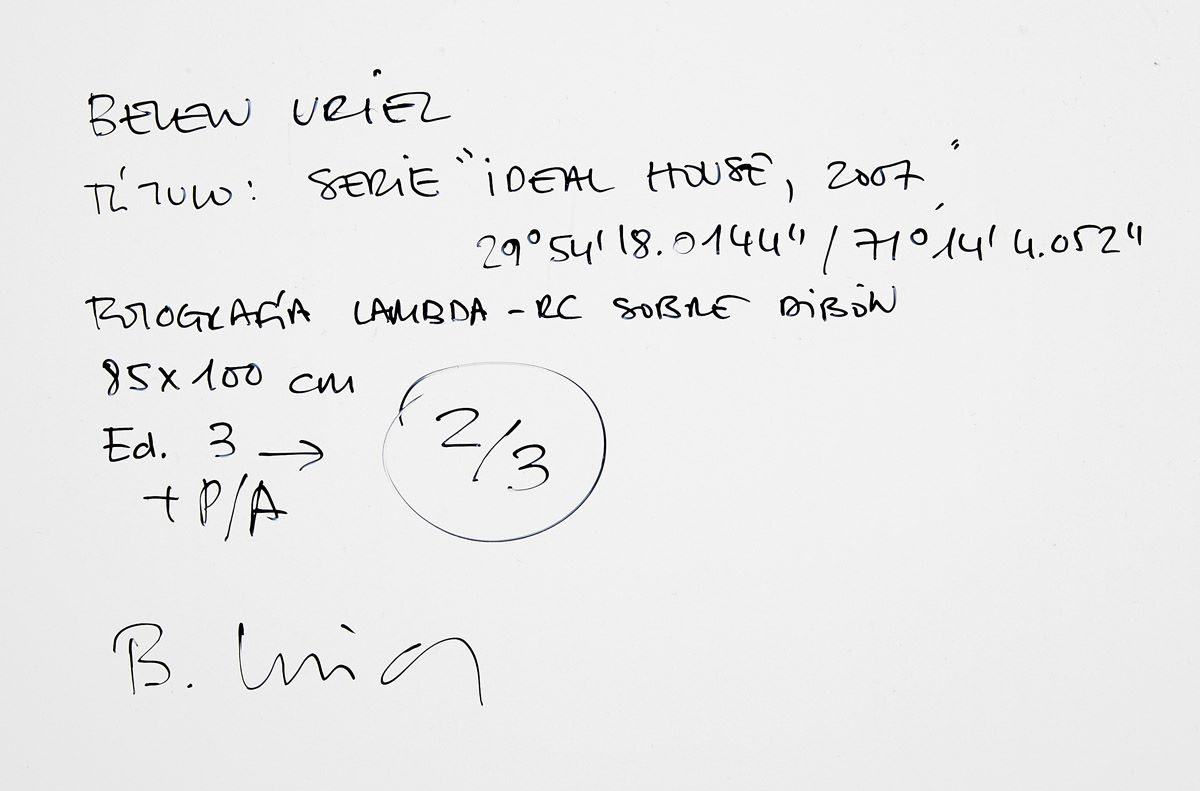 BELEN URIEL
TÍTULO: SERIE "IDEAL HOUSE, 2007"
29°54'18.0144"/71°14'4.052"
FOTOGRAFÍA LAMBDA-RC SOBRE DIBÓN
85x100 cm
Ed. 3 → 2/3
+ P/A
B. Uriel